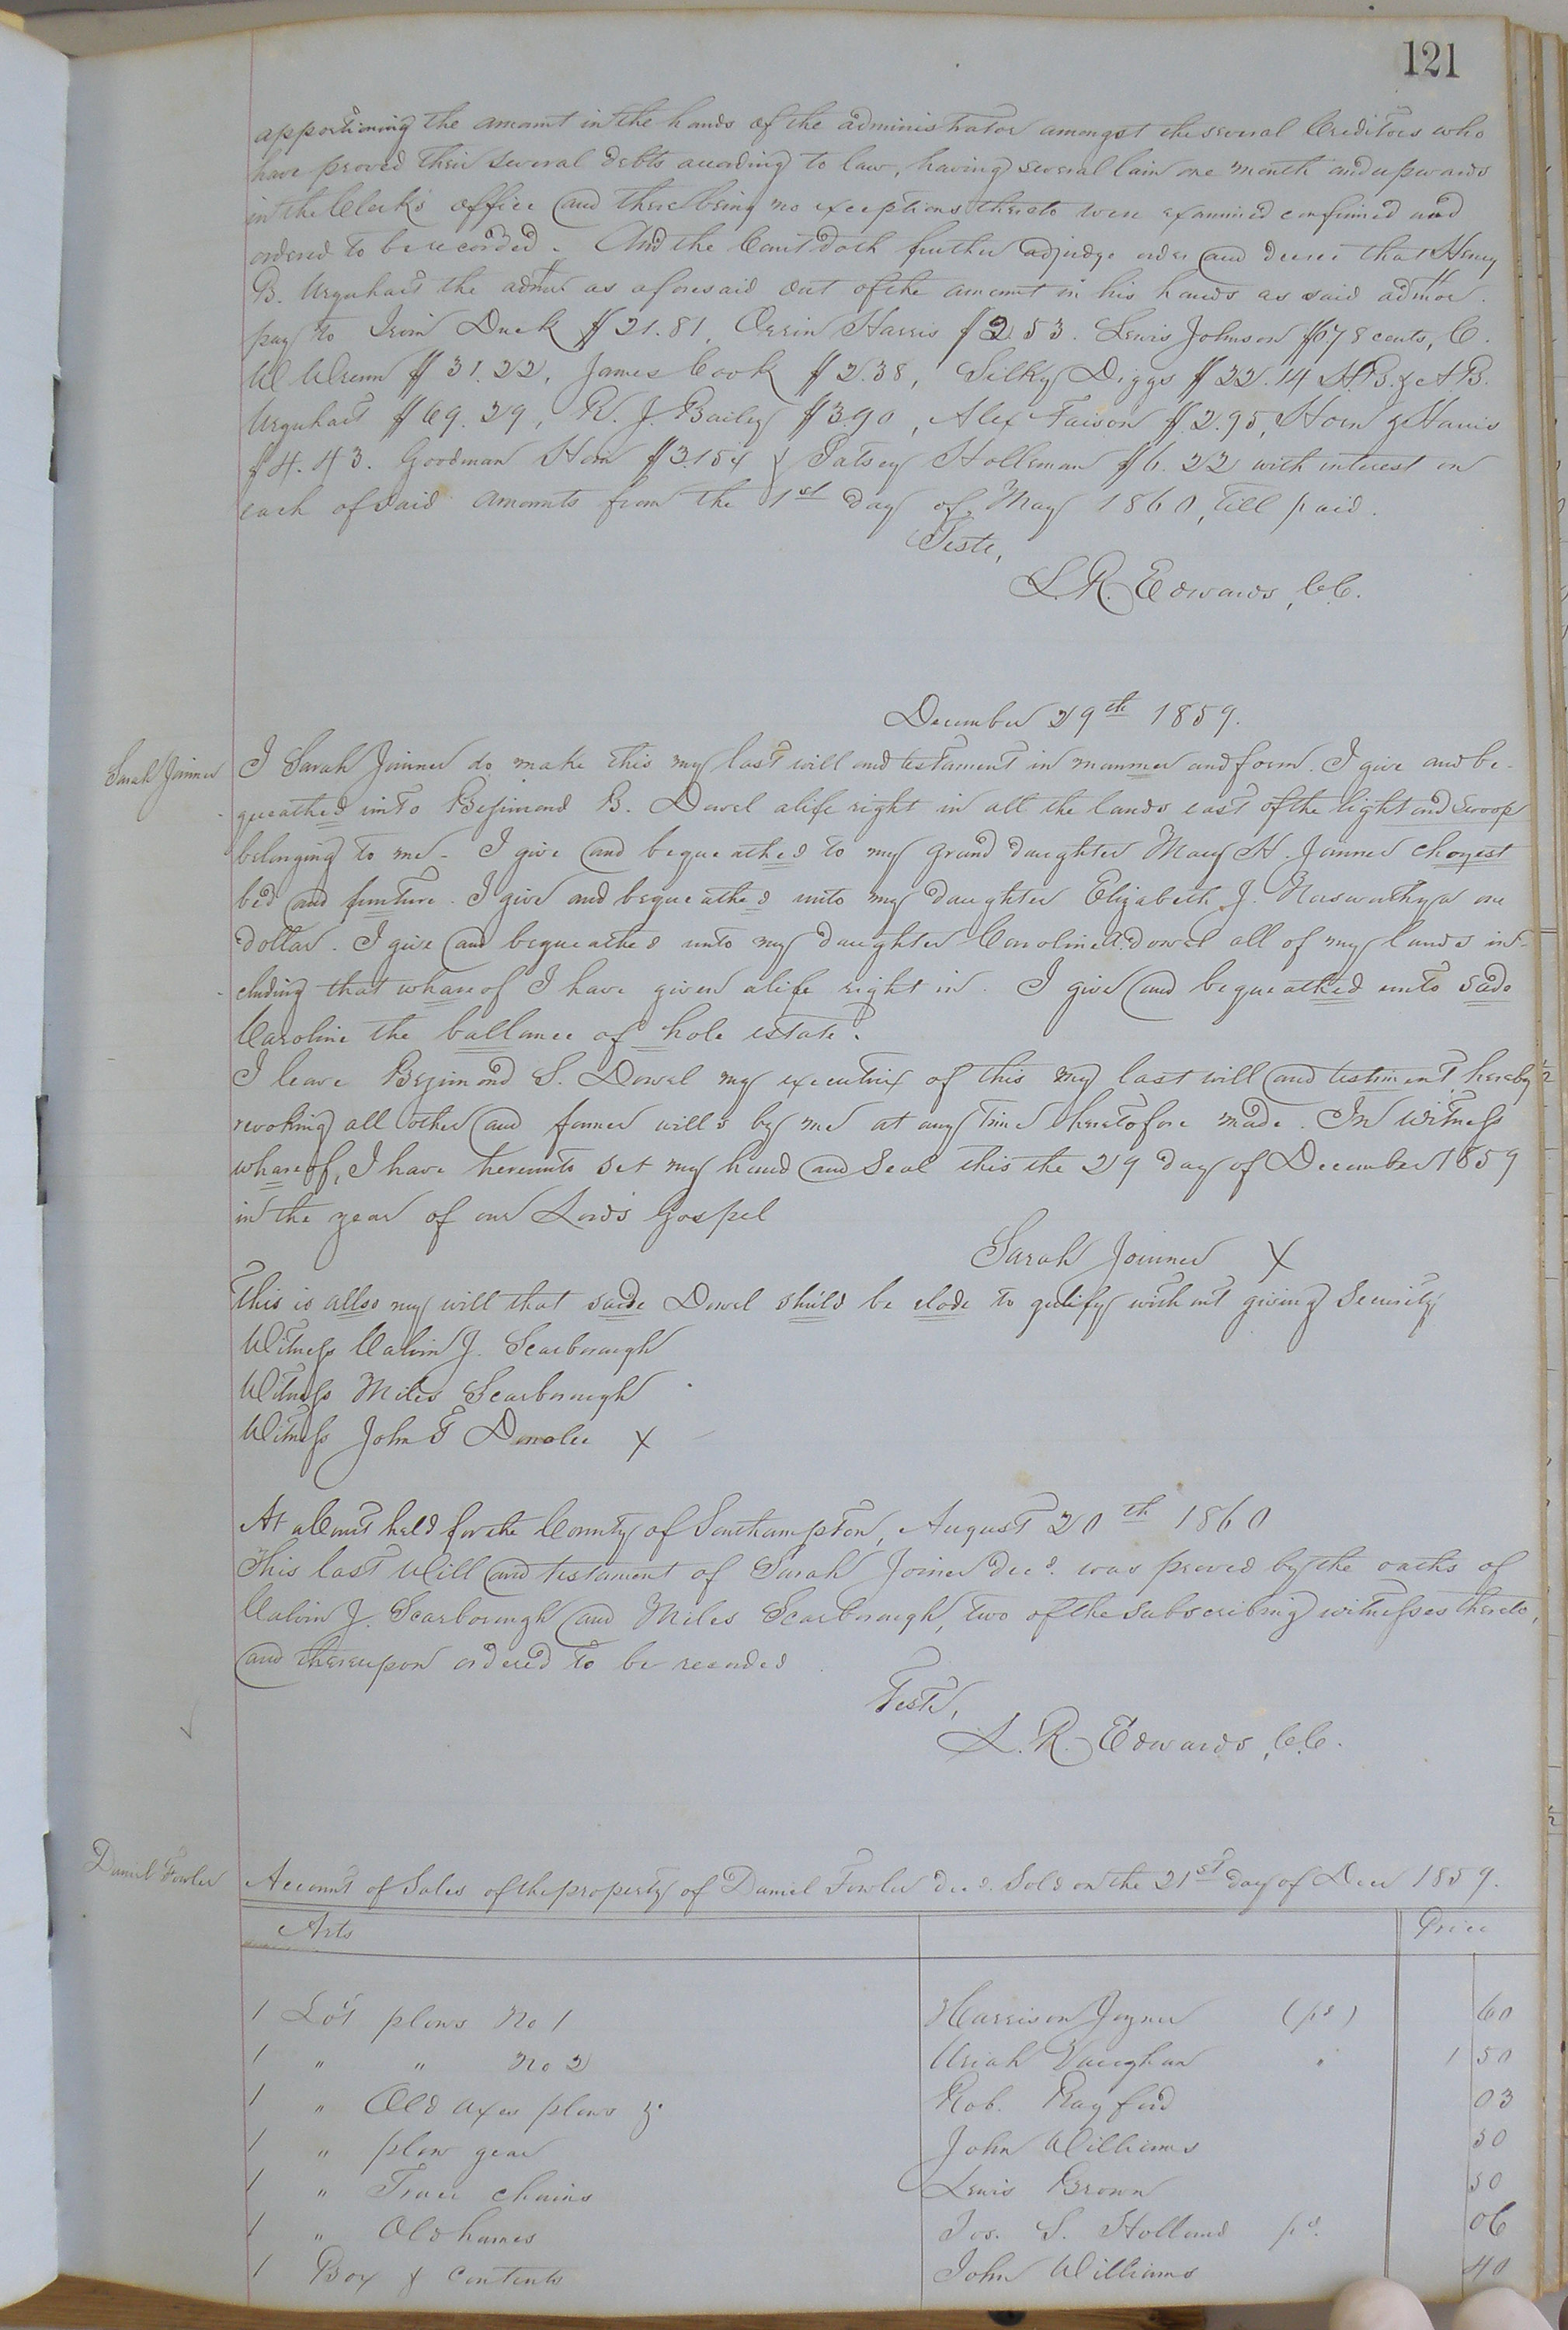 121
apportioning the amount in the hands of the administrator amongst the several Creditors who
have proved their several debts according to law, having several lain one month and upwards
in the Clerk's office and there being no exceptions thereto were examined confirmed and
ordered to be recorded. And the Court doth further adjudge order and decree that Henry
B. Urquhart the admor as aforesaid out of the amount in his hands as said admor.
pay to Irvin Duck $21.81, Orrin Harris $2.53. Lewis Johnson $ 78 cents, C.
W Wrenn $31.22, James Cook $2.38, Silky Diggs $22.14 H.B. & A.B.
Urquhart $69.29, R. J. Bailey $3.90, Alex Faison $2.95, Horn & Harris
$4.43. Goodman Horn $3.15¼ & Patsey Holleman $6.22 with interest on
each of said amounts from the 1st day of May 1860, till paid.
Teste,
L. R. Edwards, C.C.
December 29th 1859.
Sarah Joinner
I Sarah Joinner do make this my last will and testament in manner and form. I give and be-
queathed unto B. Dowel a life right in all the lands east of the light and
belonging to me - I give and bequeathed to my grand daughter Mary H. Joinner choyest
bed and funture. I give and bequeathed unto my daughter Elizabeth J. Norsworthy one
dollar. I give and bequeathed unto my daughter Caroline dowel all of my lands in-
cluding that whareof I have given a life right in. I give and bequeathed unto sade
Caroline the ballance of hole estate.
I leave S. Dowel my executrix of this my last will and testiment hereby
revoking all other and former wills by me at any time heretofore made. In witness
whareof, I have hereunto set my hand and seal this the 29 day of December 1859
in the year of our Lord's Gospel
Sarah Joinner X
This is allso my will that saide Dowel shuld be elode to qulify without giving security
Witness Calvin J. Scarborough
Witness Miles Scarborough
Witness John T X
At a Court held for the County of Southampton, August 20th 1860
This last Will and testament of Sarah Joiner decd. was proved by the oaths of
Calvin J. Scarborough and Miles Scarborough, two of the subscribing witnesses thereto,
and thereupon ordered to be recorded
Teste,
L. R. Edwards, C.C.
Daniel Fowler
Account of Sales of the property of Daniel Fowler decd. Sold on the 21st day of Dec 1859.
Arts Price
1 Lot plows No 1 Harrison Joyner (pd) 60
1 " " No 2 Uriah Vaughan " 1 50
1 " Old axes plows &c Rob. Rayford 03
1 " plow gear John Williams 50
1 " Trace chains Lewis Brown 50
1 " Old hames Jos. S. Holland pd. 06
1 Box & contents John Williams 40